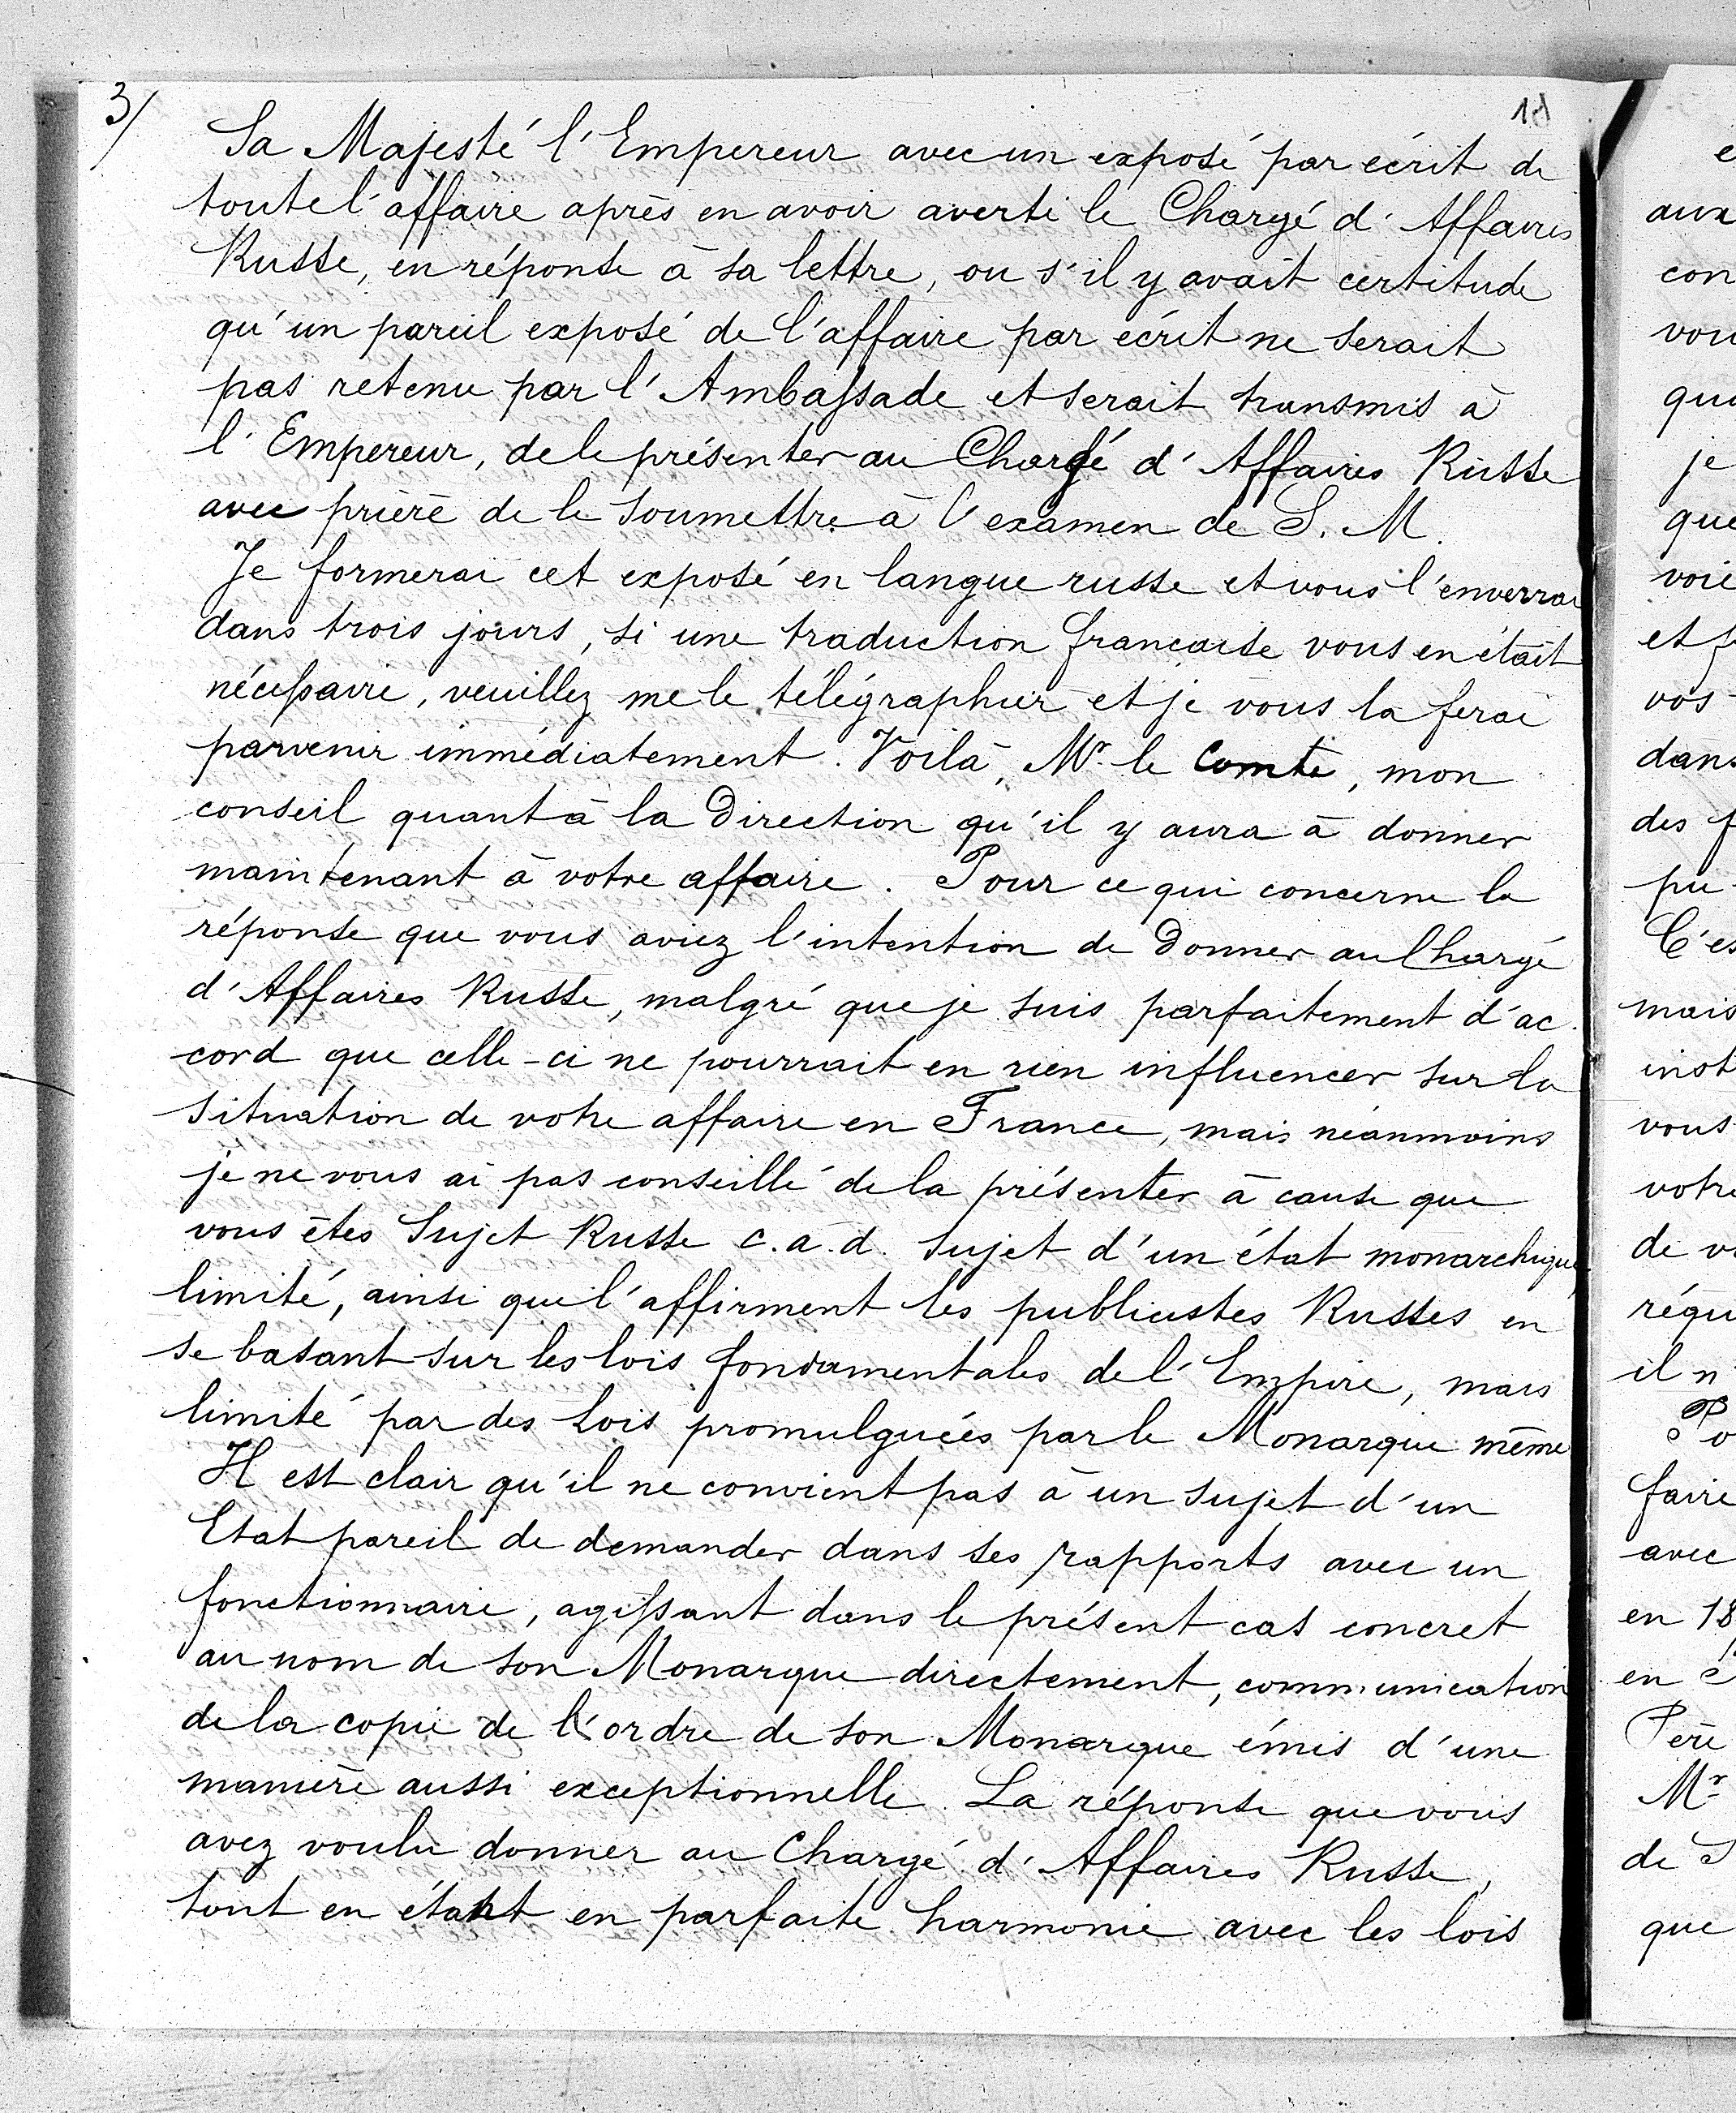 3/
18
Sa Majesté l'Empereur avec un exposé par écrit de
toute l'affaire après en avoir averti le Chargé d'Affaires
Russe, en réponse à sa lettre, ou s'il y avait certitude
qu'un pareil exposé de l'affaire par écrit ne serait
pas retenu par l'Ambassade et serait transmis à
l'Empereur, de le présenter au Chargé d'Affaires Russe
avec prière de le soumettre à l'examen de S. M.
Je formerai cet exposé en langue russe et vous l'enverrai
dans trois jours, si une traduction française vous en était
nécessaire, veuillez me le télégraphier et je vous la ferai
parvenir immédiatement. Voilà, Mr. le Comte, mon
conseil quant à la Direction qu'il y aura à donner
maintenant à votre affaire. Pour ce qui concerne la
réponse que vous aviez l'intention de Donner au Chargé
d'Affaires Russe, malgré que je suis parfaitement d'ac
cord que celle-ci ne pourrait en rien influencer sur la
situation de votre affaire en France, mais néanmoins
je ne vous ai pas conseillé de la présenter à cause que
vous êtes Sujet Russe c.a.d. sujet d'un état monarchique,
limité, ainsi que l'affirment les publicistes Russes en
se basant sur les lois fondamentales de l'Empire, mais
limité par des Lois promulguées par le Monarque même
Il est clair qu'il ne convient pas à un sujet d'un
Etat pareil de demander dans ses rapports avec un
fonctionnaire, agissant dans le présent cas concret
au nom de son Monarque directement, communication
de la copie de l'ordre de son Monarque émis d'une
manière aussi exceptionnelle. La réponse que vous
avez voulu donner au Chargé d'Affaires Russe,
tout en étant en parfaite harmonie avec les lois
aux
con
vou
qua
je
que
voie
et f
vos
dans
des f
pu
C'es
mais
inst
vous
votre
de v
réqu
il n'
Po
faire
avec
en 18
en
Père
Mr
de S
que